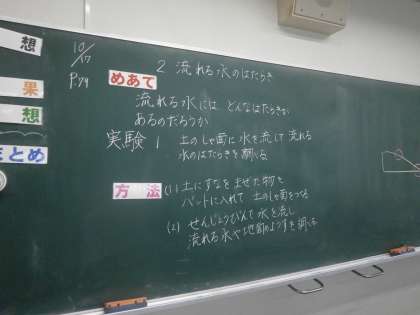 想
果
想
まとめ
10/17
P.79
2 流れる水のはたらき
めあて
流れる水には どんなはたらきが
あるのだろうか
実験1 土のしゃ面に水を流して流れる
水のはたらきを調べる
方法
(1) 土にすなを まぜた物を
バットに入れて 土のしゃ面をつくる
(2) せんじょうびんで水を流し
流れる水や地面のようすを調べる